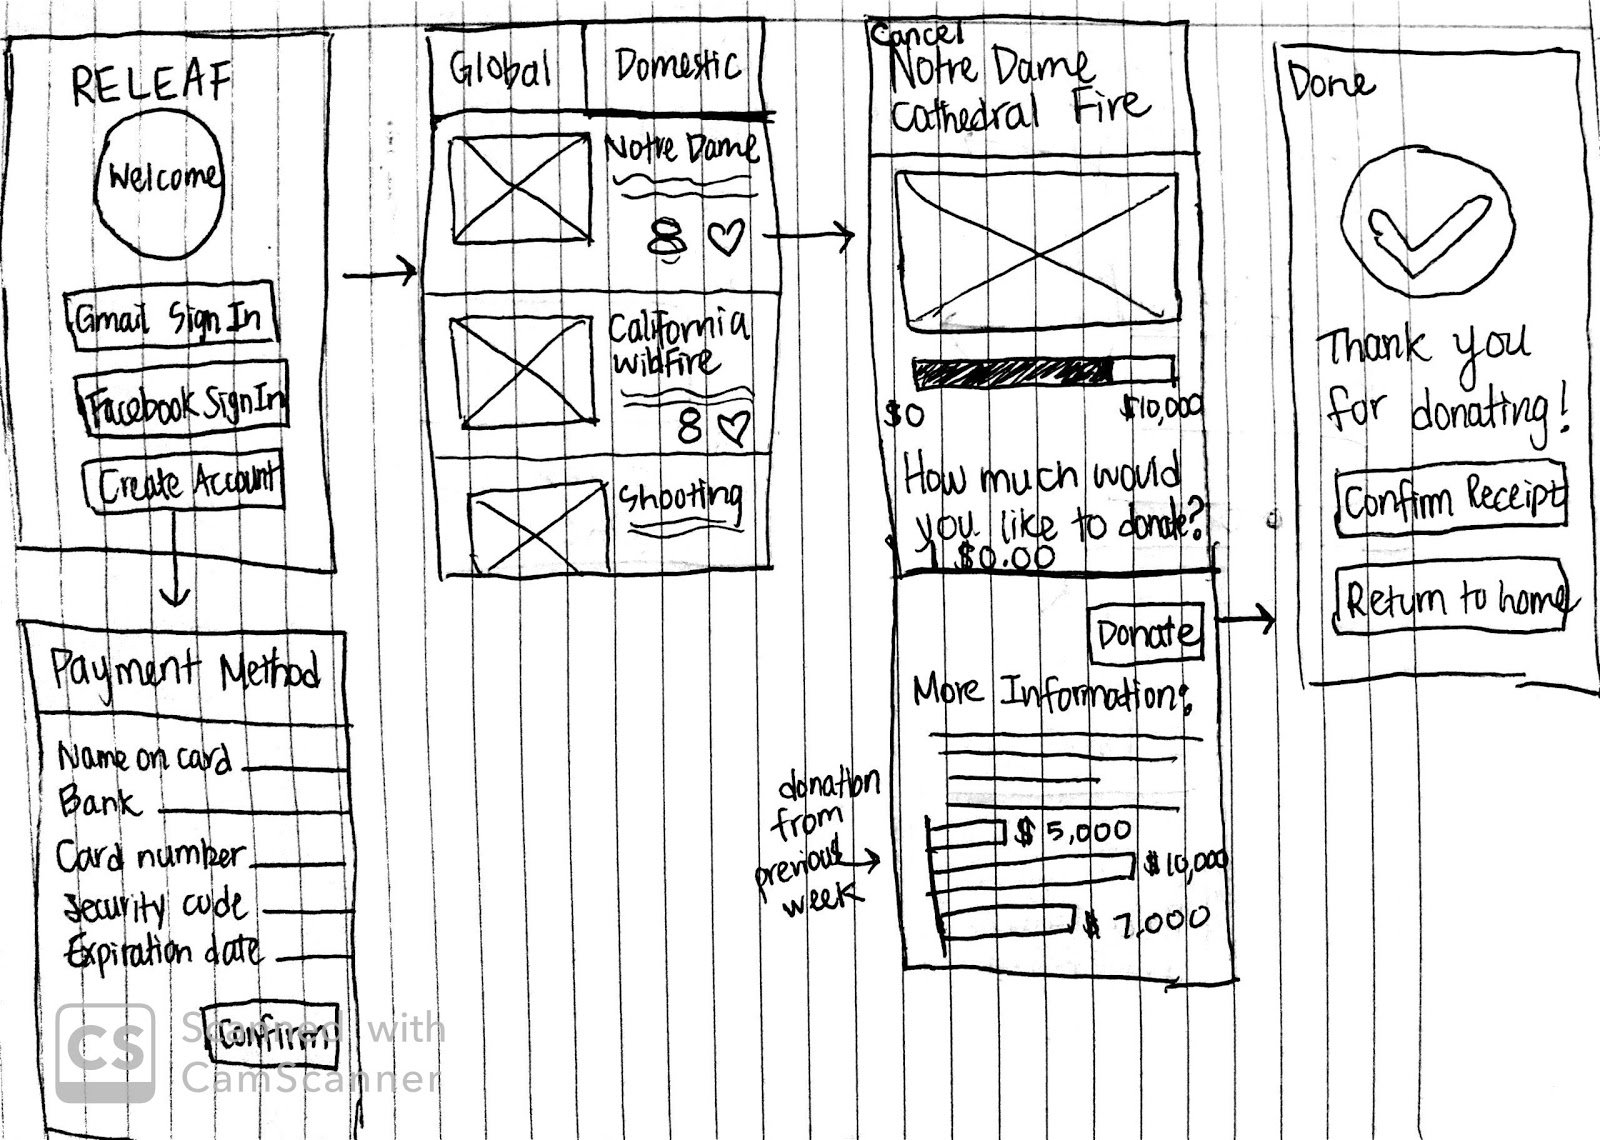 RELEAF
Welcome
Gmail Sign In
Facebook Sign In
Create Account
Payment Method
Name on card
Bank
Card number
Security code
Expiration date
Confirm
Global
Domestic
Notre Dame
8
California
wildFire
8
Shooting
Cancel
Notre Dame
Cathedral Fire
$0
$10,000
How much would
you like to donate?
$0.00
Donate
More Information:
donation
from
previous
week
$ 5,000
$10,000
$ 7,000
Done
Thank you
for donating!
Confirm Receipt
Return to home
CS
Scanned with
CamScanner